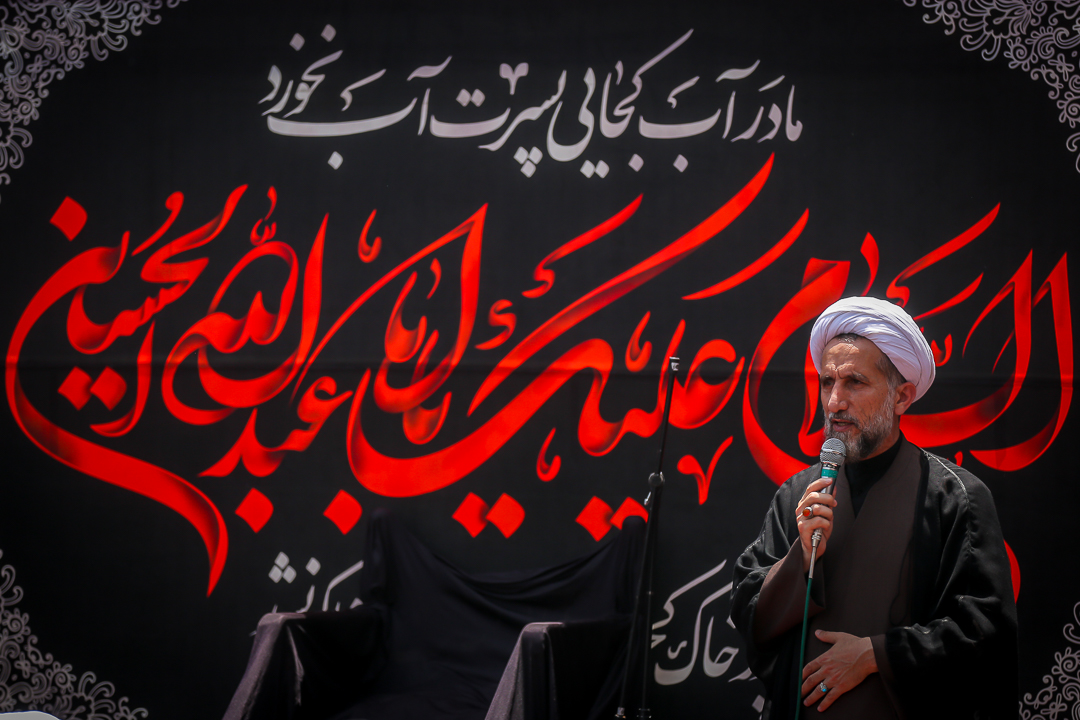 مادر آب کجایی پسرت آب نخورد
السلام علیک یا اباعبدالله الحسین
خاک